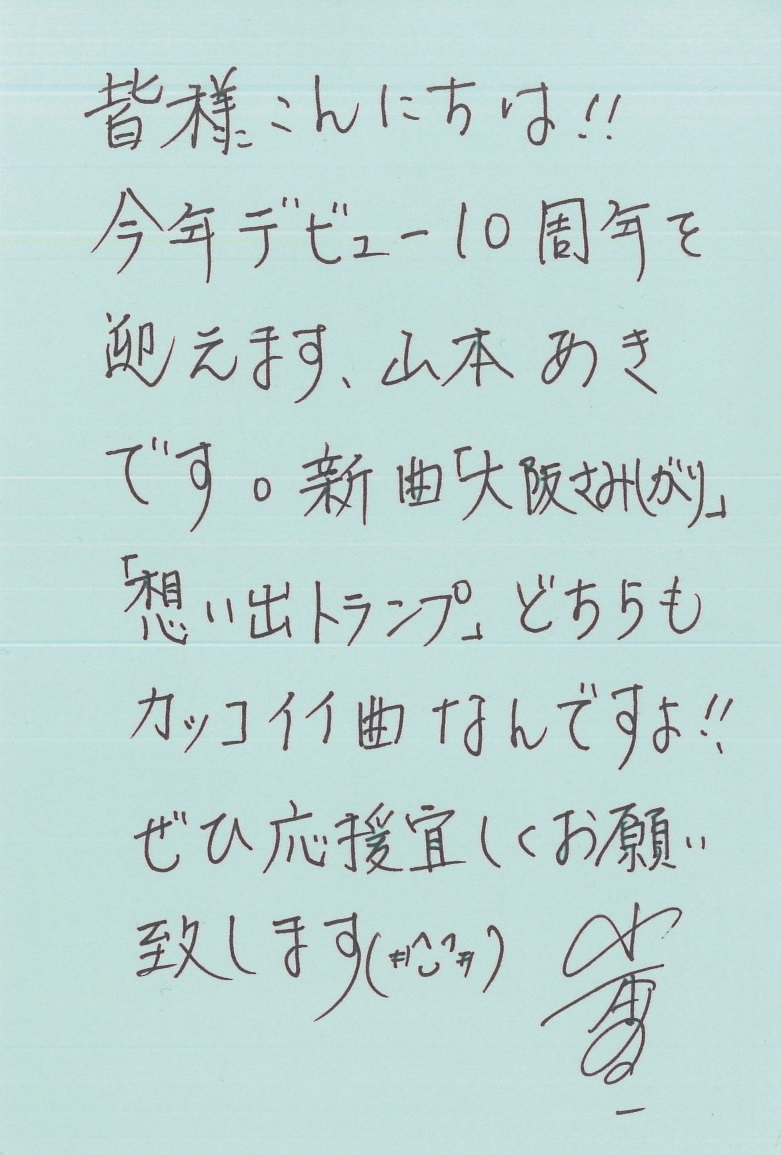 皆様こんにちは!!
今年デビュー10周年を
迎えます、山本あき
です。新曲「大阪さみしがり」
「想い出トランプ」どちらも
カッコイイ曲なんですよ!!
ぜひ応援宜しくお願い
致します(#^⌣^#)